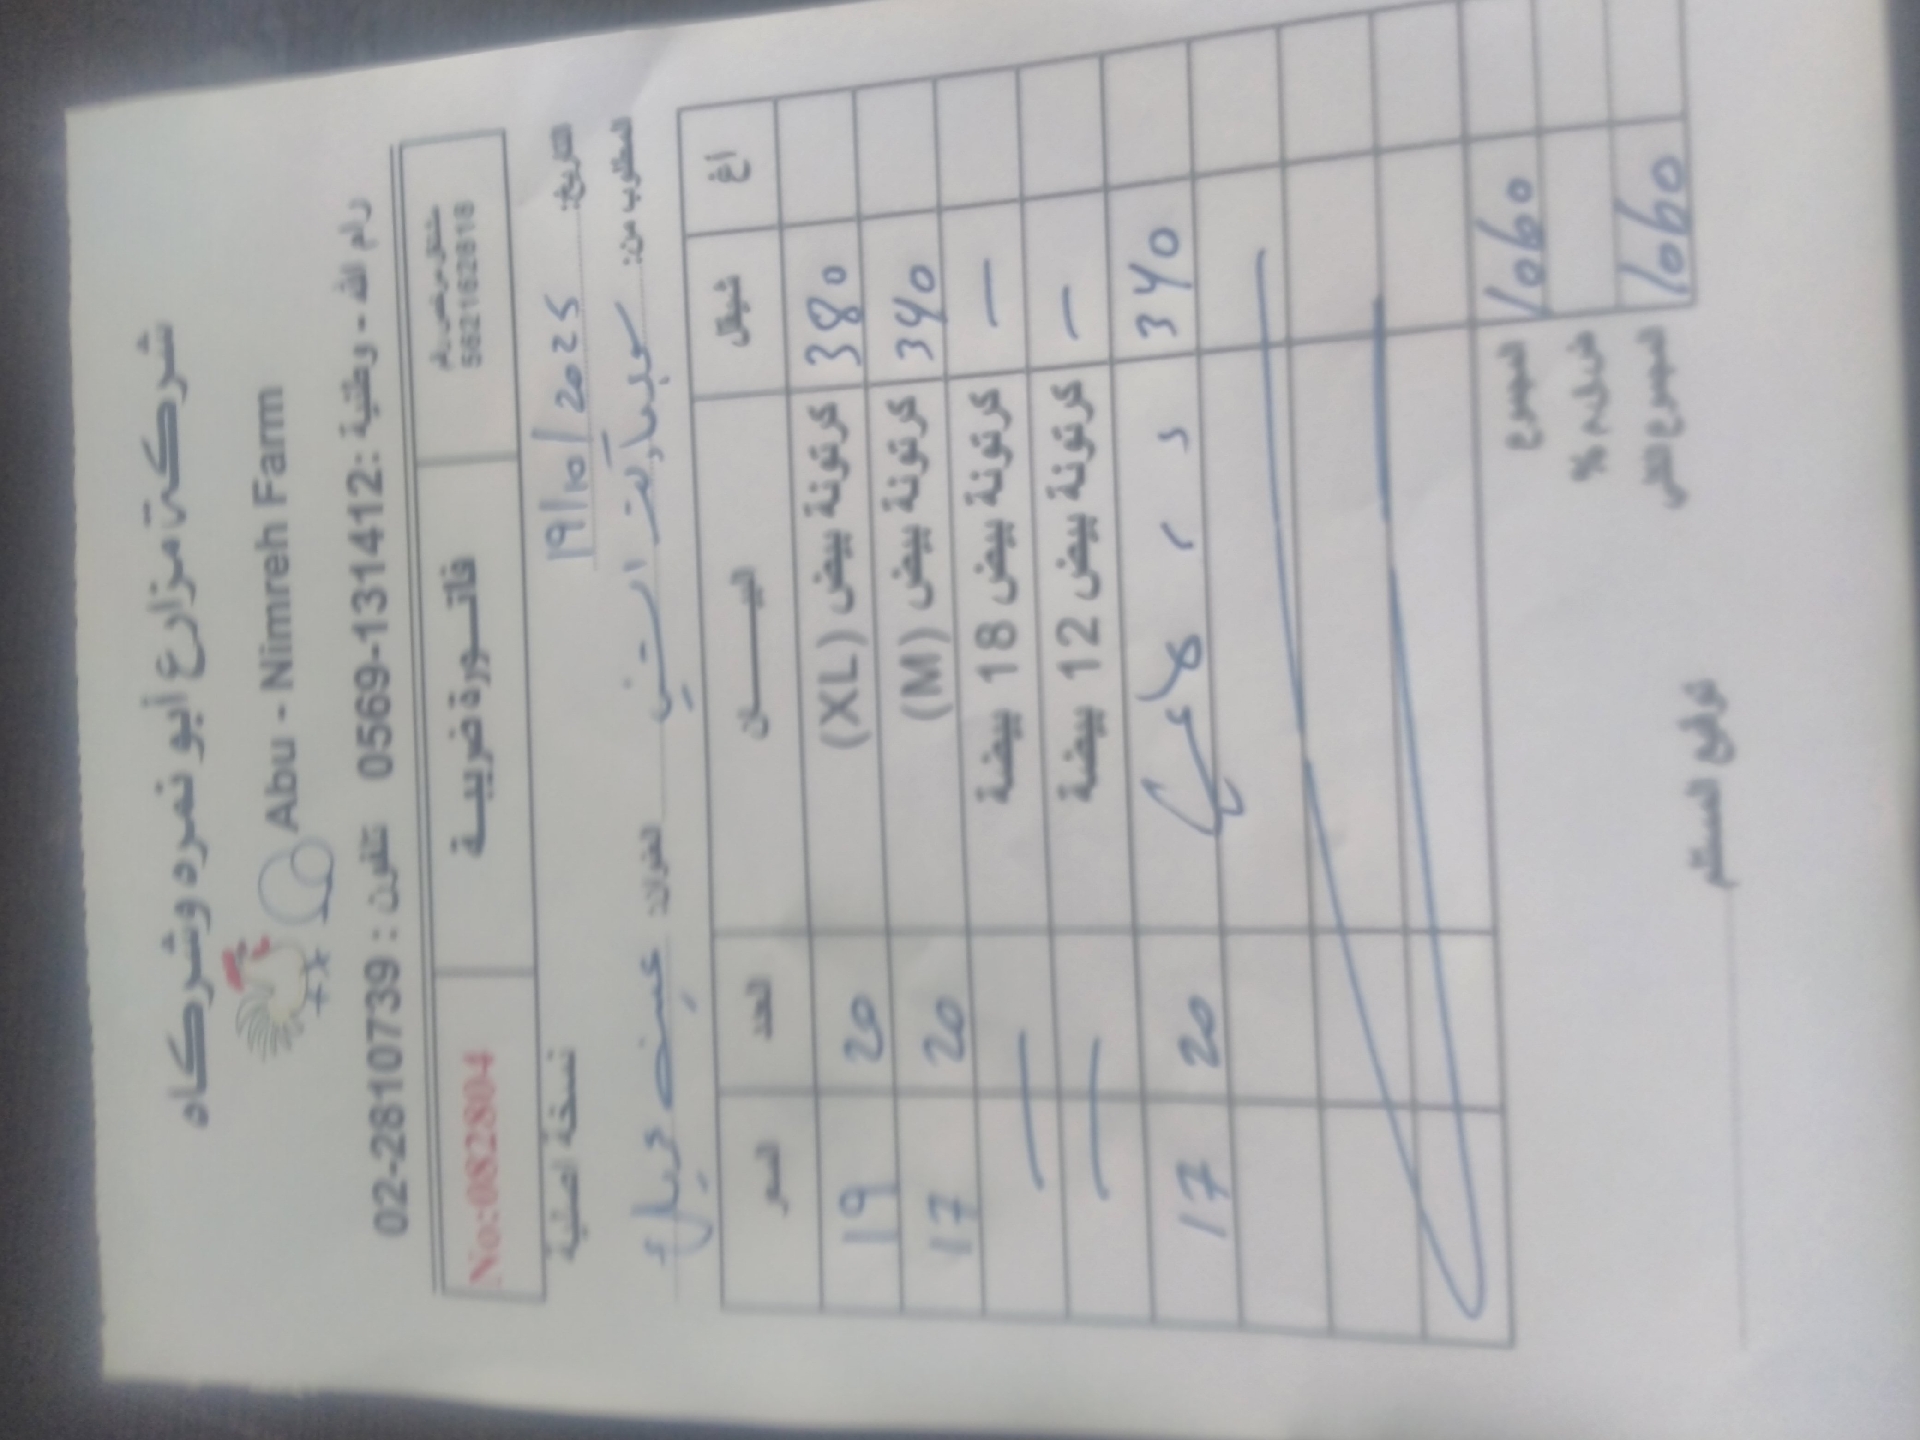 شركة مزارع أبو نمره وشركاه
Abu - Nimreh Farm
رام الله - وطنية : 0569-131412 تلفون : 02-2810739
مشتغل مرخص رقم
562162818
فاتورة ضريبية
No:082804
التاريخ: 19/10/2025
نسخة اصلية
المطلوب من: سوبرماركت
العنوان:
اغ شيقل البيـــــان العدد السعر
380 كرتونة بيض (XL) 20 19
340 كرتونة بيض (M) 20 17
— كرتونة بيض 18 بيضة —
— كرتونة بيض 12 بيضة —
340 20 17
المجموع 1060
ض.ق.م %
المجموع الكلي 1060
توقيع المستلم